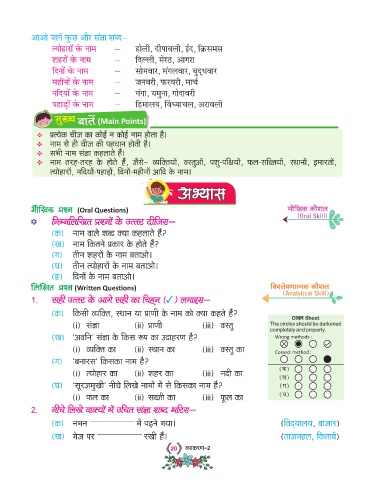 आओ जानें कुछ और संज्ञा शब्द–
त्योहारों के नाम – होली, दीपावली, ईद, क्रिसमस
शहरों के नाम – दिल्ली, मेरठ, आगरा
दिनों के नाम – सोमवार, मंगलवार, बुद्धवार
महीनों के नाम – जनवरी, फरवरी, मार्च
नदियों के नाम – गंगा, यमुना, गोदावरी
पहाड़ों के नाम – हिमालय, विंध्याचल, अरावली
मुख्य बातें (Main Points)
❖ प्रत्येक चीज का कोई न कोई नाम होता है।
❖ नाम से ही चीज की पहचान होती है।
❖ सभी नाम संज्ञा कहलाते हैं।
❖ नाम तरह-तरह के होते हैं, जैसे– व्यक्तियों, वस्तुओं, पशु-पक्षियों, फल-सब्जियों, स्थानों, इमारतों,
त्योहारों, नदियों-पहाड़ों, दिनों-महीनों आदि के नाम।
अभ्यास
मौखिक प्रश्न (Oral Questions)
मौखिक कौशल
(Oral Skill)
निम्नलिखित प्रश्नों के उत्तर दीजिए–
(क) नाम वाले शब्द क्या कहलाते हैं?
(ख) नाम कितने प्रकार के होते हैं?
(ग) तीन शहरों के नाम बताओ।
(घ) तीन त्योहारों के नाम बताओ।
(ङ) दिनों के नाम बताओ।
लिखित प्रश्न (Written Questions)
विश्लेषणात्मक कौशल
(Analytical Skill)
1. सही उत्तर के आगे सही का चिह्न (✓) लगाइए–
(क) किसी व्यक्ति, स्थान या प्राणी के नाम को क्या कहते हैं?
(i) संज्ञा (ii) प्राणी (iii) वस्तु
(ख) 'अवनि' संज्ञा के किस रूप का उदाहरण है?
(i) व्यक्ति का (ii) स्थान का (iii) वस्तु का
(ग) 'बनारस' किसका नाम है?
(i) त्योहार का (ii) शहर का (iii) नदी का
(घ) 'सूरजमुखी' नीचे लिखे नामों में से किसका नाम है?
(i) फल का (ii) सब्जी का (iii) फूल का
OMR Sheet
The circles should be darkened
completely and properly.
Wrong methods :
Correct method :
(क)
(ख)
(ग)
(घ)
2. नीचे लिखे वाक्यों में उचित संज्ञा शब्द भरिए–
(क) नमन ________ में पढ़ने गया। (विद्यालय, बाजार)
(ख) मेज पर ________ रखी हैं। (ताजमहल, किताबें)
20 व्याकरण–2